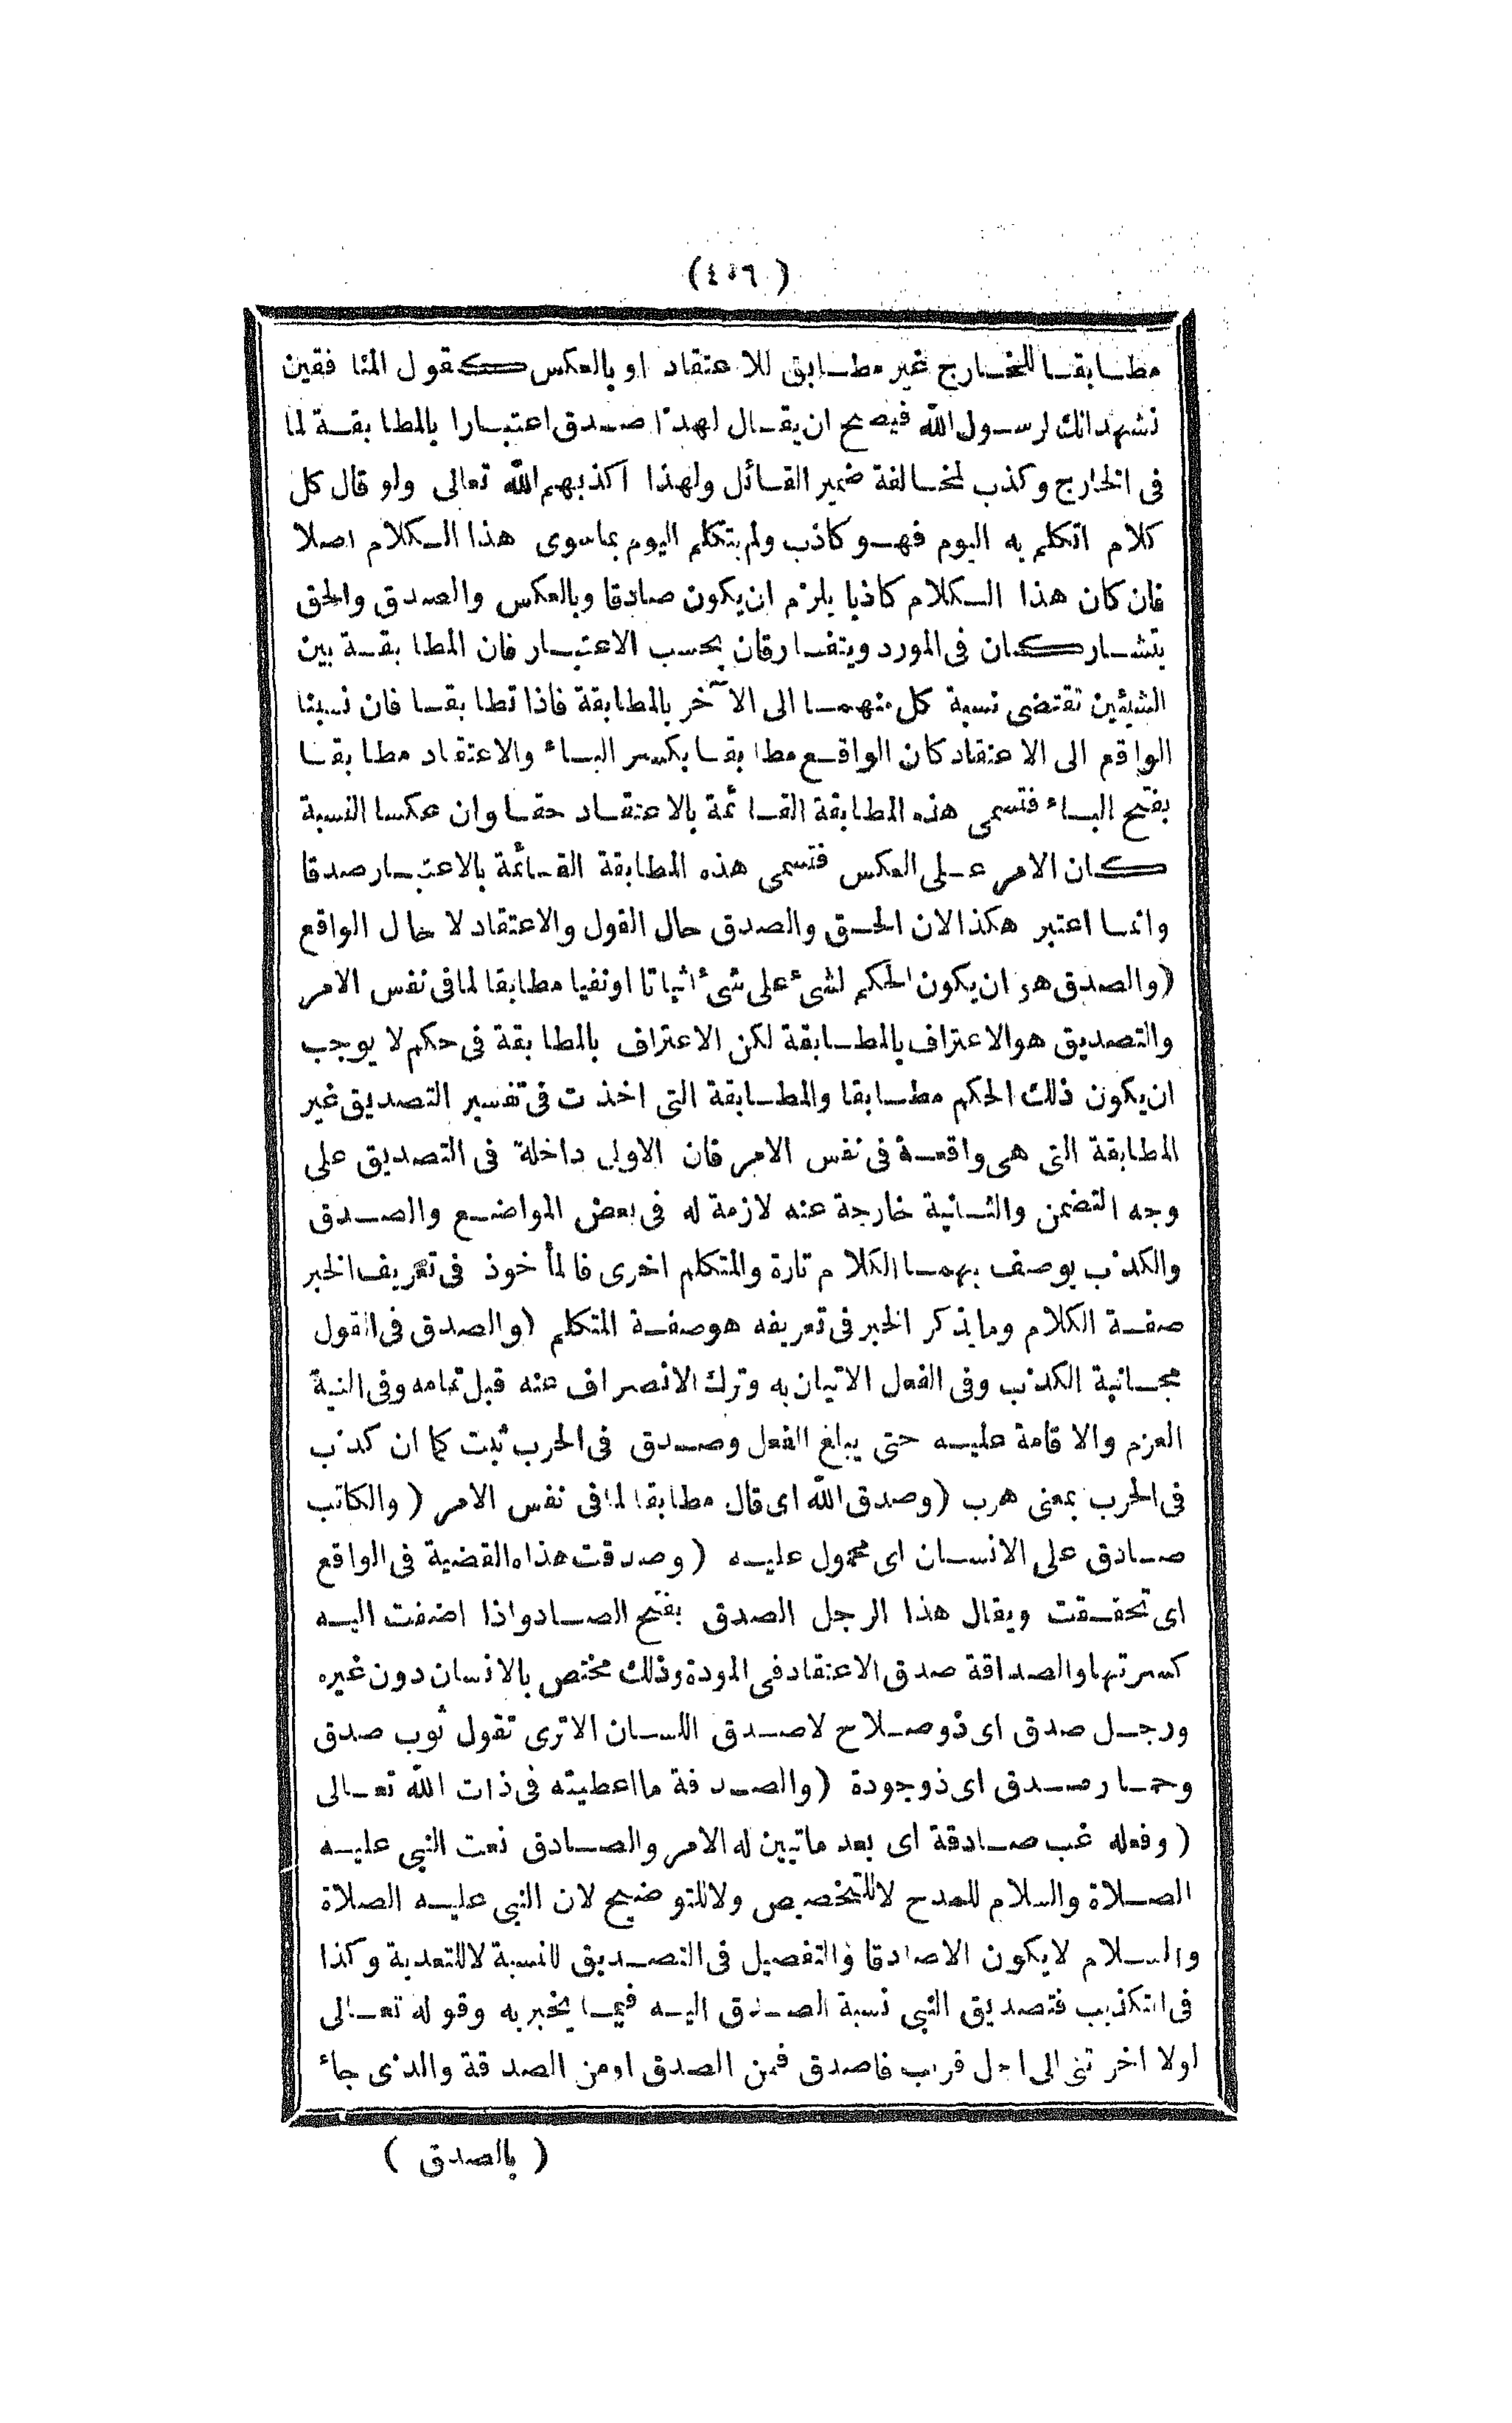 (٤٥٦)
مطابقا للخارج غير مطابق للاعتقاد او بالعكس كقول المنافقين
نشهد انك لرسول الله فيصح ان يقال لهذا صدق اعتبارا بالمطابقة لما
فى الخارج وكذب لمخالفة ضمير القائل ولهذا اكذبهم الله تعالى ولو قال كل
كلام اتكلم به اليوم فهو كاذب ولم يتكلم اليوم بما سوى هذا الكلام اصلا
فان كان هذا الكلام كاذبا يلزم ان يكون صادقا وبالعكس والصدق والحق
يتشاركان فى المورد ويتفارقان بحسب الاعتبار فان المطابقة بين
الشيئين تقتضى نسبة كل منهما الى الآخر بالمطابقة فاذا تطابقا فان نسبنا
الواقع الى الاعتقاد كان الواقع مطابقا بكسر الباء والاعتقاد مطابقا
بفتح الباء فتسمى هذه المطابقة القائمة بالاعتقاد حقا وان عكسا النسبة
كان الامر على العكس فتسمى هذه المطابقة القائمة بالاعتبار صدقا
وانما اعتبر هكذا لان الحق والصدق حال القول والاعتقاد لا حال الواقع
(والصدق هو ان يكون الحكم لشئ على شئ اثباتا او نفيا مطابقا لما فى نفس الامر
والتصديق هو الاعتراف بالمطابقة لكن الاعتراف بالمطابقة فى حكم لا يوجب
ان يكون ذلك الحكم مطابقا والمطابقة التى اخذت فى تفسير التصديق غير
المطابقة التى هى واقعة فى نفس الامر فان الاولى داخلة فى التصديق على
وجه التضمن والثانية خارجة عنه لازمة له فى بعض المواضع والصدق
والكذب يوصف بهما الكلام تارة والمتكلم اخرى فالمأخوذ فى تعريف الخبر
صفة الكلام وما يذكر الخبر فى تعريفه هو صفة المتكلم (والصدق فى القول
مجانبة الكذب وفى الفعل الاتيان به وترك الانصراف عنه قبل تمامه وفى النية
العزم والاقامة عليه حتى يبلغ الفعل وصدق فى الحرب ثبت كما ان كذب
فى الحرب بمعنى هرب (وصدق الله اى قال مطابقا لما فى نفس الامر (والكاتب
صادق على الانسان اى محمول عليه (وصدقت هذه القضية فى الواقع
اى تحققت ويقال هذا الرجل الصدق بفتح الصاد واذا اضفت اليه
كسرتها والصداقة صدق الاعتقاد فى المودة وذلك مختص بالانسان دون غيره
ورجل صدق اى ذو صلاح لا صدق اللسان الا ترى تقول ثوب صدق
وحمار صدق اى ذو جودة (والصدقة ما اعطيته فى ذات الله تعالى
(وفعله غب صادقة اى بعد ما تبين له الامر والصادق نعت النبى عليه
الصلاة والسلام للمدح لا للتخصيص ولا للتوضيح لان النبى عليه الصلاة
والسلام لا يكون الا صادقا والتفصيل فى التصديق للنسبة لا للتعدية وكذا
فى التكذيب فتصديق النبى نسبة الصدق اليه فيما يخبر به وقوله تعالى
لولا اخرتنى الى اجل قريب فاصدق فمن الصدق او من الصدقة والذى جاء
(بالصدق)